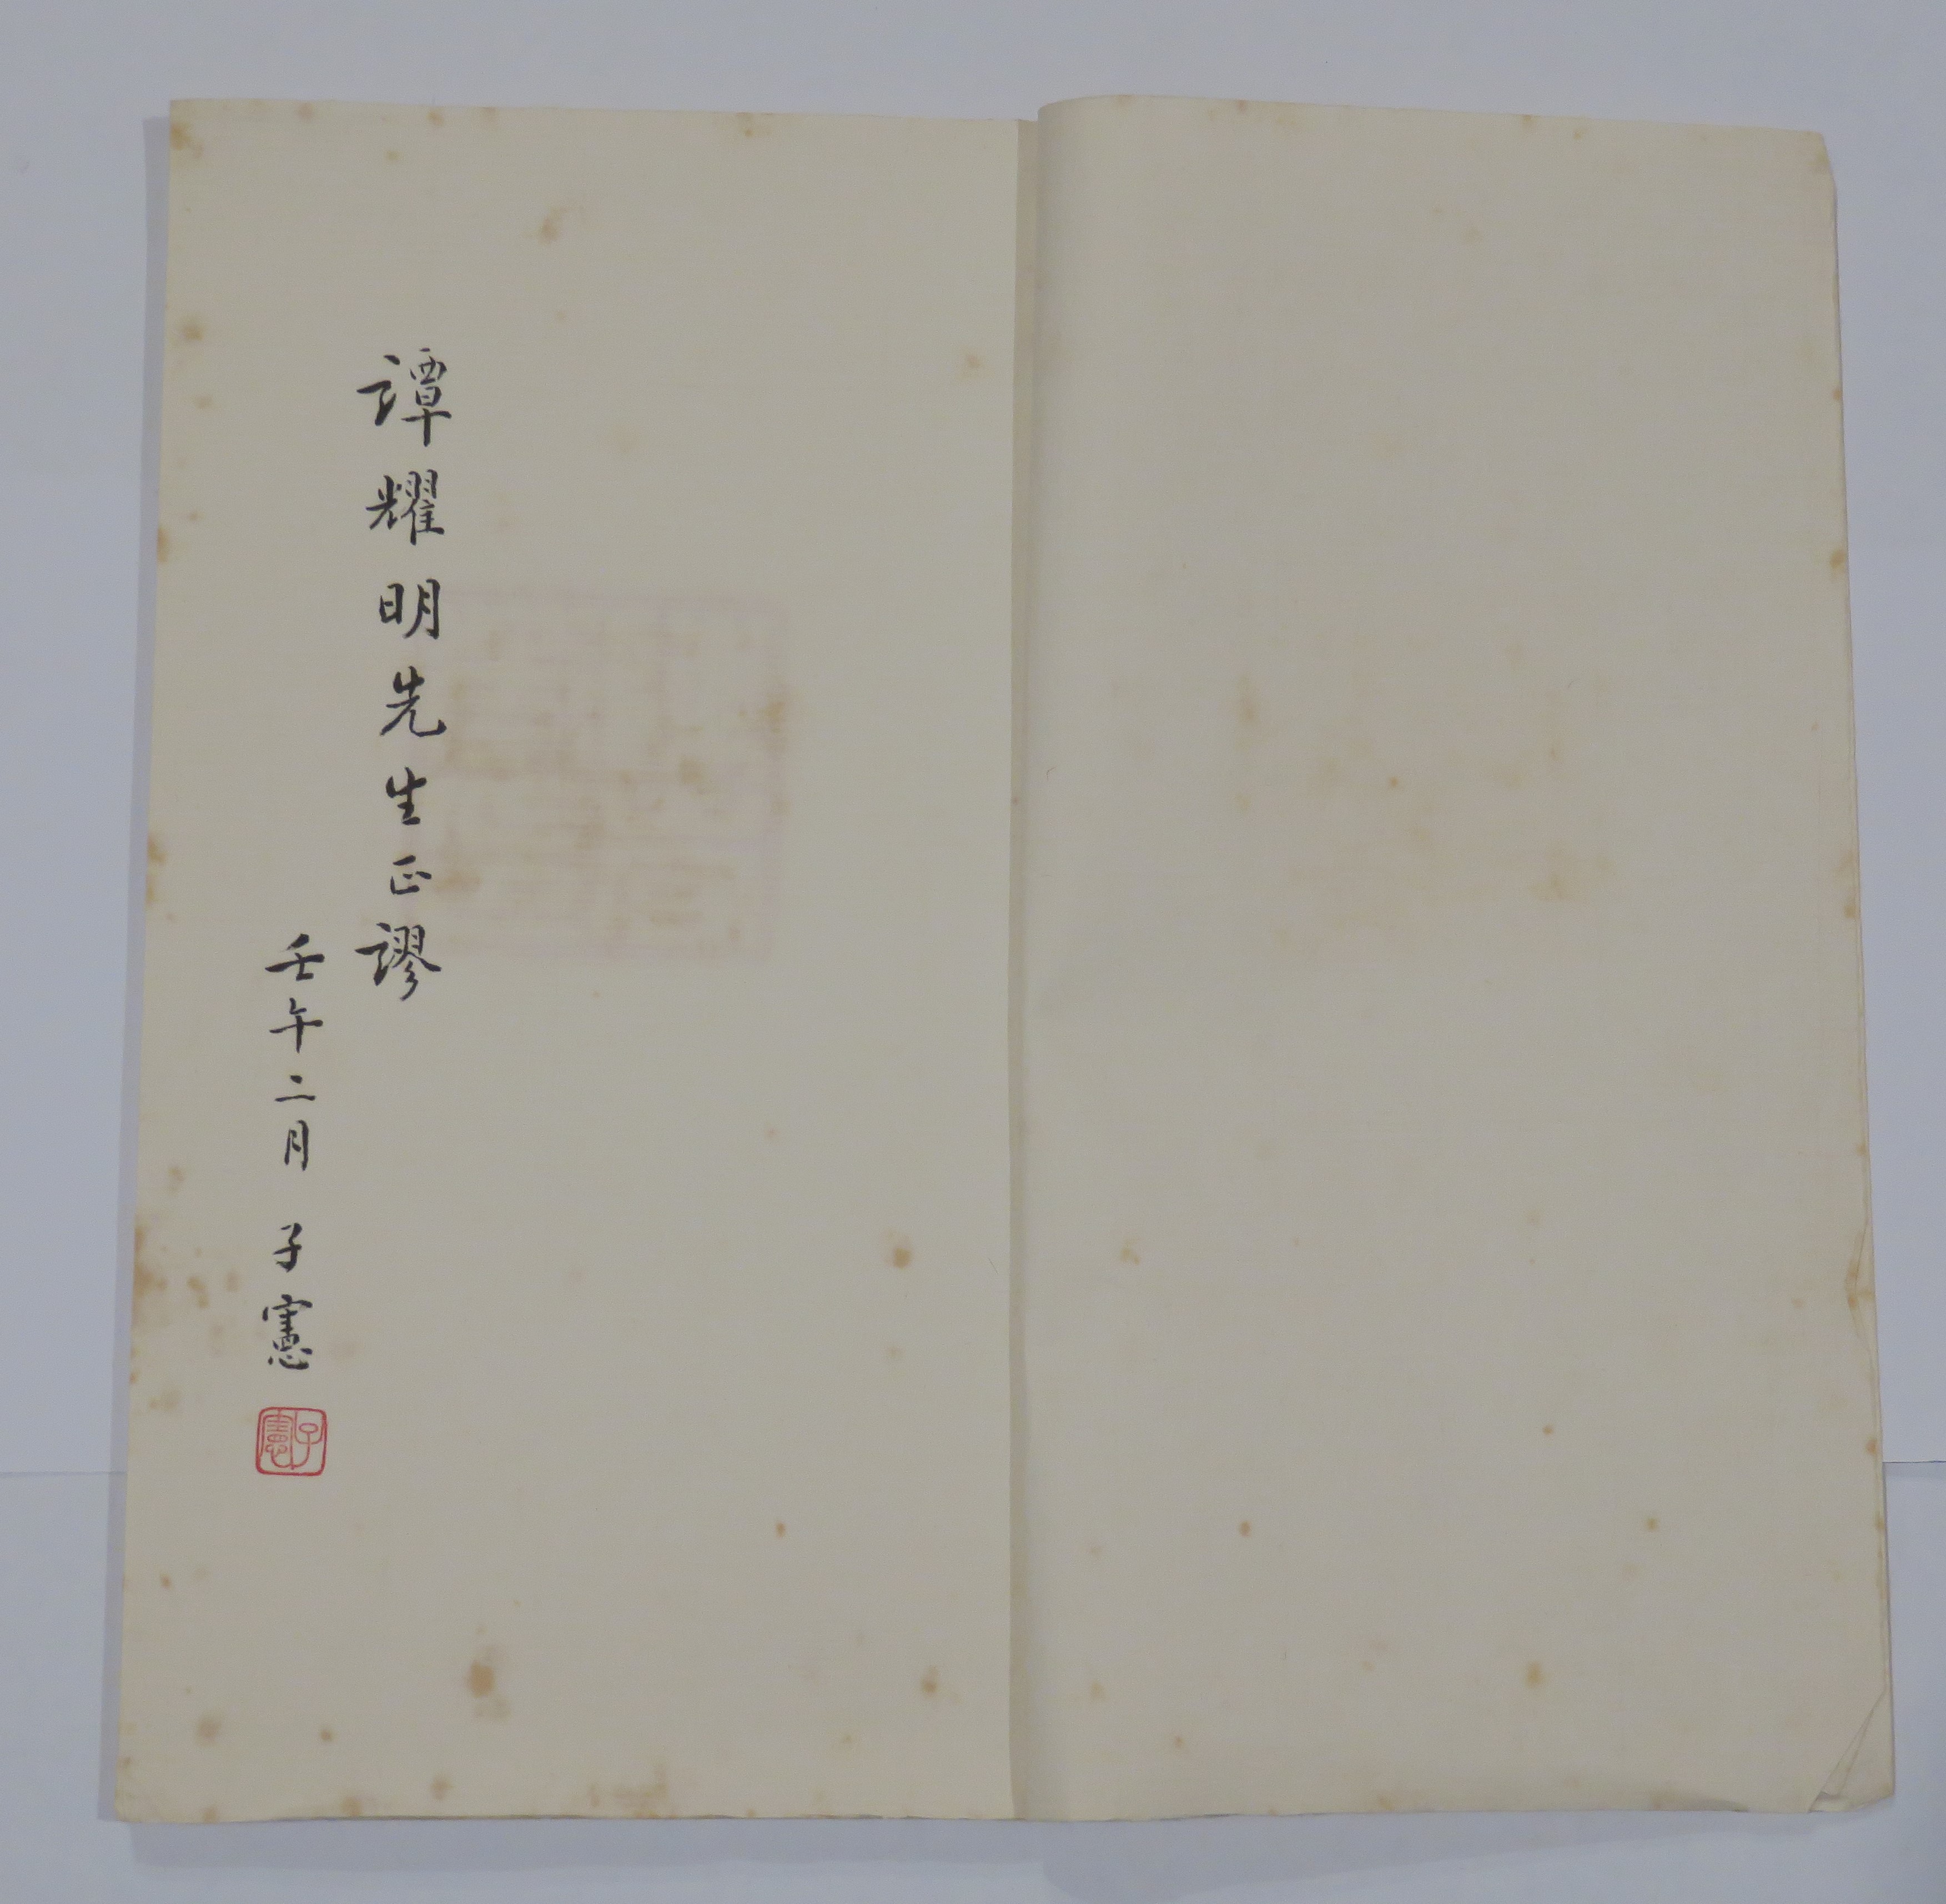 譚耀明先生正謬
壬午二月 子憲
子憲